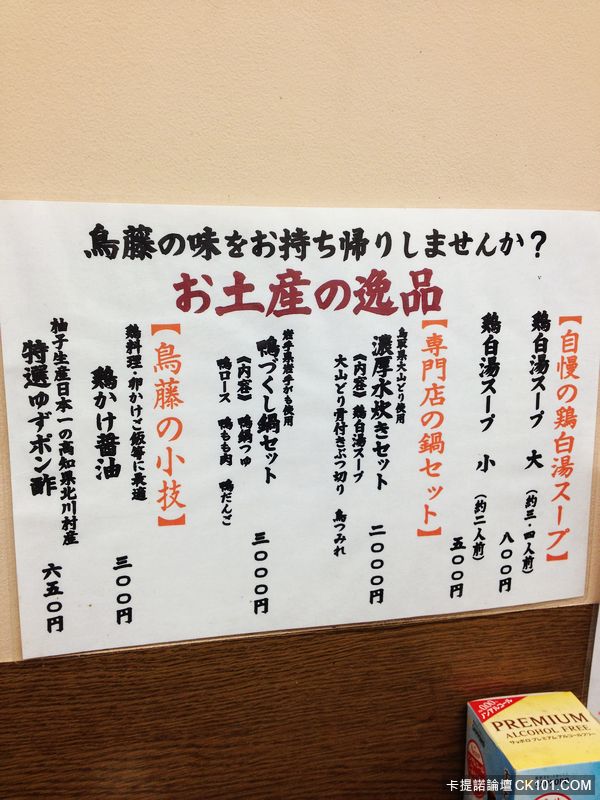 鳥藤の味をお持ち帰りしませんか?
お土産の逸品
【自慢の鶏白湯スープ】
鶏白湯スープ 大 (約三・四人前) 八〇〇円
鶏白湯スープ 小 (約二人前) 五〇〇円
【専門店の鍋セット】
鳥取県大山どり使用
濃厚水炊きセット 二〇〇〇円
《内容》鶏白湯スープ
大山どり骨付きぶつ切り 鳥つみれ
岩手県岩手がも使用
鴨づくし鍋セット 三〇〇〇円
《内容》鴨鍋つゆ
鴨ロース 鴨もも肉 鴨だんご
【鳥藤の小技】
鶏料理・卵かけご飯等に最適
鶏かけ醤油 三〇〇円
柚子生産日本一の高知県北川村産
特選ゆずポン酢 六五〇円
0.00%
ノンアルコール
PREMIUM
ALCOHOL FREE
サッポロ プレミアム アルコールフリー
卡提諾論壇 CK101.COM